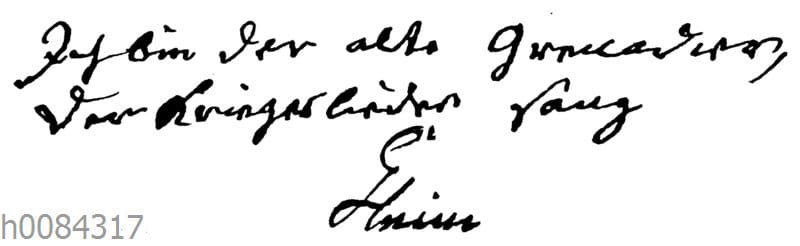 Ich bin der alte Grenadier,
der Kriegeslieder sang
Gleim
h0084317